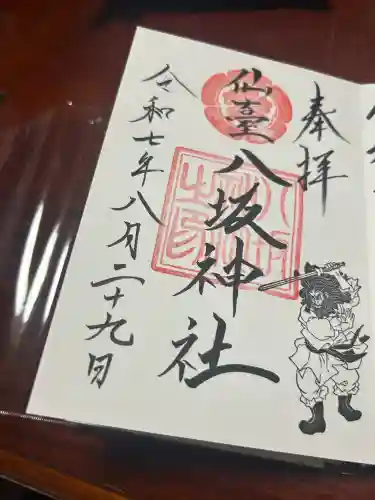 奉拝
仙臺
八坂神社
令和七年八月二十九日